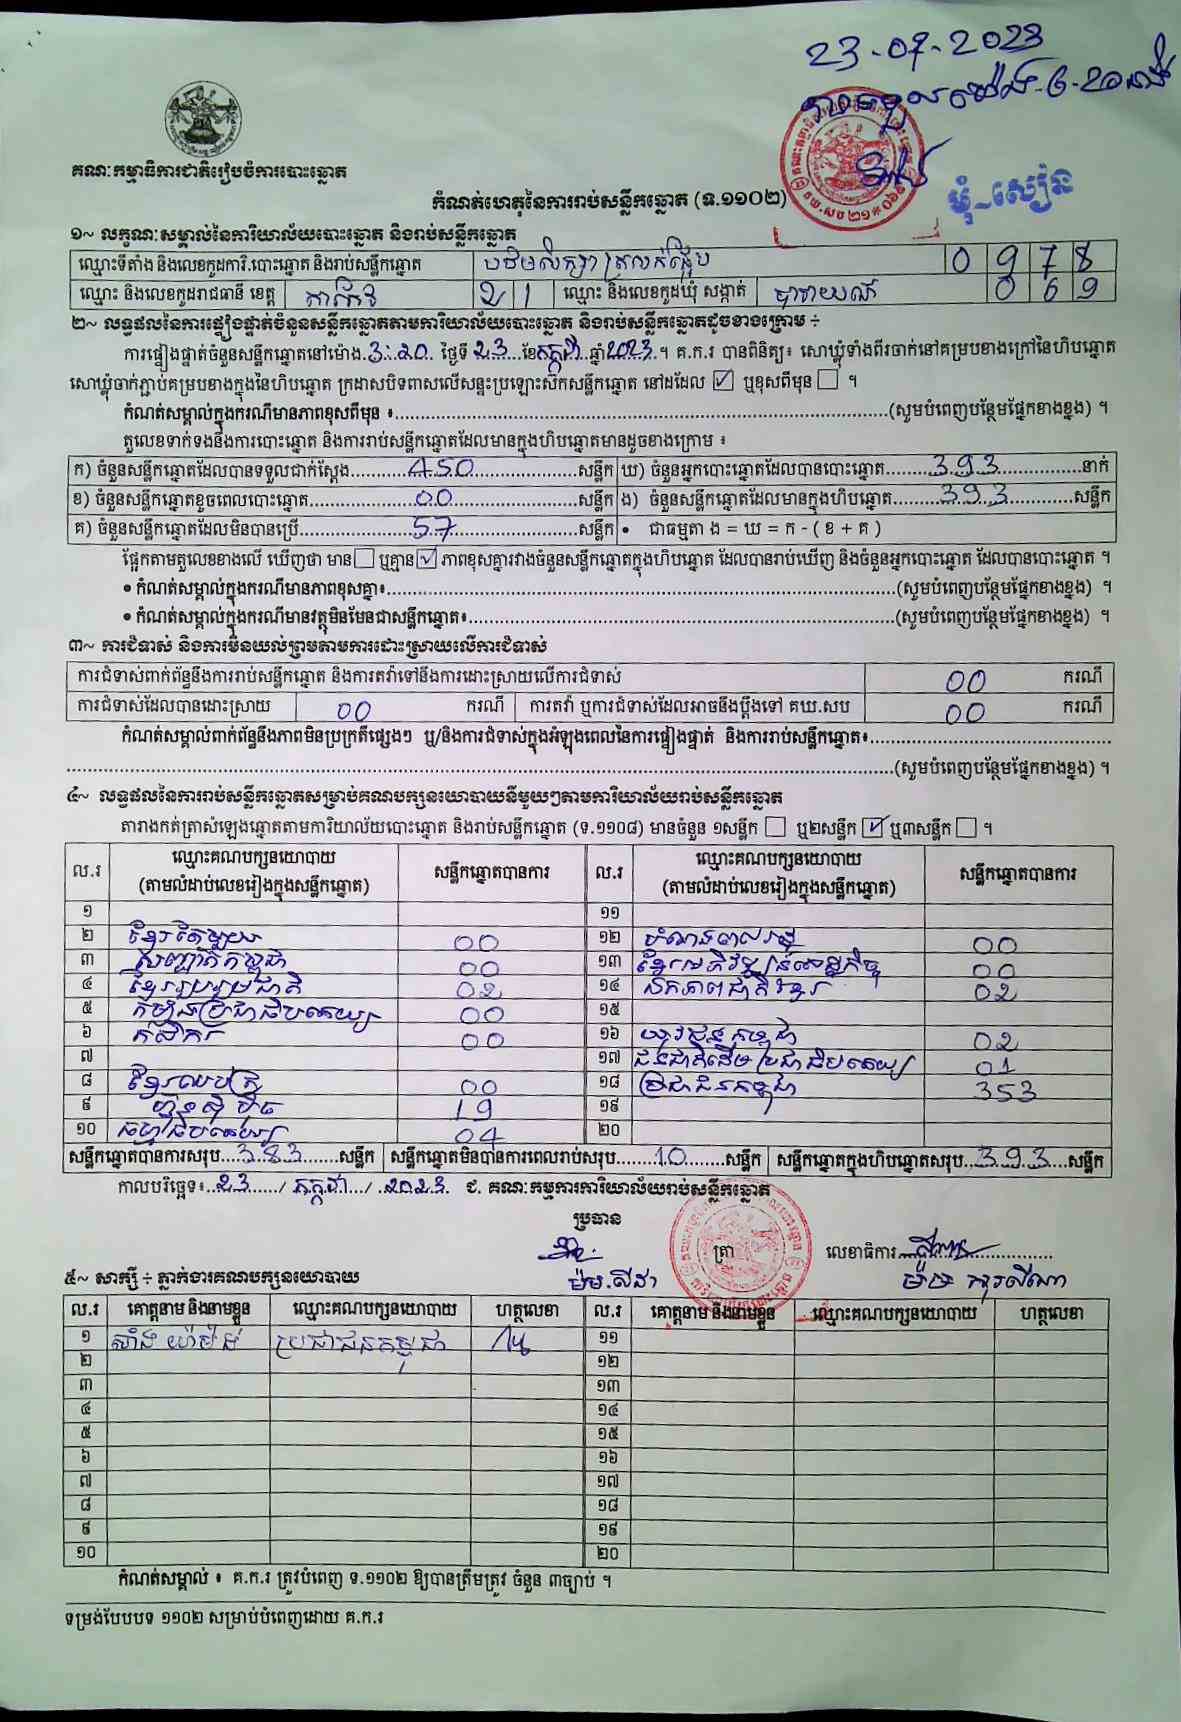 23-07-2023
គណៈកម្មាធិការជាតិរៀបចំការបោះឆ្នោត
កំណត់ហេតុនៃការរាប់សន្លឹកឆ្នោត (ទ.១១០២)
មុំ-សឿន
១~ លក្ខណៈសម្គាល់នៃការិយាល័យបោះឆ្នោត និងរាប់សន្លឹកឆ្នោត
ឈ្មោះទីតាំង និងលេខកូដការិ.បោះឆ្នោត និងរាប់សន្លឹកឆ្នោត 0 9 7 8
ឈ្មោះ និងលេខកូដរាជធានី ខេត្ត តាកែវ 2 1 ឈ្មោះ និងលេខកូដឃុំ សង្កាត់ 0 6 9
២~ លទ្ធផលនៃការផ្ទៀងផ្ទាត់ចំនួនសន្លឹកឆ្នោតតាមការិយាល័យបោះឆ្នោត និងរាប់សន្លឹកឆ្នោតដូចខាងក្រោម ÷
ការផ្ទៀងផ្ទាត់ចំនួនសន្លឹកឆ្នោតនៅម៉ោង 3:20 ថ្ងៃទី 23 ខែ កក្កដា ឆ្នាំ 2023 ។ គ.ក.រ បានពិនិត្យ៖ សោឃ្លុំទាំងពីរចាក់នៅគម្របខាងក្រៅនៃហិបឆ្នោត
សោឃ្លុំចាក់ភ្ជាប់គម្របខាងក្នុងនៃហិបឆ្នោត ក្រដាសបិទពាសលើសន្ទះប្រឡោះស៊កសន្លឹកឆ្នោត នៅដដែល ☑ ឬខុសពីមុន ☐ ។
កំណត់សម្គាល់ក្នុងករណីមានភាពខុសពីមុន ៖ (សូមបំពេញបន្ថែមផ្នែកខាងខ្នង) ។
តួលេខទាក់ទងនឹងការបោះឆ្នោត និងការរាប់សន្លឹកឆ្នោតដែលមានក្នុងហិបឆ្នោតមានដូចខាងក្រោម ៖
ក) ចំនួនសន្លឹកឆ្នោតដែលបានទទួលជាក់ស្តែង 450 សន្លឹក ឃ) ចំនួនអ្នកបោះឆ្នោតដែលបានបោះឆ្នោត 393 នាក់
ខ) ចំនួនសន្លឹកឆ្នោតខូចពេលបោះឆ្នោត 00 សន្លឹក ង) ចំនួនសន្លឹកឆ្នោតដែលមានក្នុងហិបឆ្នោត 393 សន្លឹក
គ) ចំនួនសន្លឹកឆ្នោតដែលមិនបានប្រើ 57 សន្លឹក • ជាធម្មតា ង = ឃ = ក - ( ខ + គ )
ផ្អែកតាមតួលេខខាងលើ ឃើញថា មាន ☐ ឬគ្មាន ☑ ភាពខុសគ្នារវាងចំនួនសន្លឹកឆ្នោតក្នុងហិបឆ្នោត ដែលបានរាប់ឃើញ និងចំនួនអ្នកបោះឆ្នោត ដែលបានបោះឆ្នោត ។
• កំណត់សម្គាល់ក្នុងករណីមានភាពខុសគ្នា៖ (សូមបំពេញបន្ថែមផ្នែកខាងខ្នង) ។
• កំណត់សម្គាល់ក្នុងករណីមានវត្ថុមិនមែនជាសន្លឹកឆ្នោត៖ (សូមបំពេញបន្ថែមផ្នែកខាងខ្នង) ។
៣~ ការជំទាស់ និងការមិនយល់ព្រមតាមការដោះស្រាយលើការជំទាស់
ការជំទាស់ពាក់ព័ន្ធនឹងការរាប់សន្លឹកឆ្នោត និងការតវ៉ាទៅនឹងការដោះស្រាយលើការជំទាស់ 00 ករណី
ការជំទាស់ដែលបានដោះស្រាយ 00 ករណី ការតវ៉ា ឬការជំទាស់ដែលអាចនឹងប្តឹងទៅ គឃ.សប 00 ករណី
កំណត់សម្គាល់ពាក់ព័ន្ធនឹងភាពមិនប្រក្រតីផ្សេងៗ ឬ/និងការជំទាស់ក្នុងអំឡុងពេលនៃការផ្ទៀងផ្ទាត់ និងការរាប់សន្លឹកឆ្នោត៖
(សូមបំពេញបន្ថែមផ្នែកខាងខ្នង) ។
៤~ លទ្ធផលនៃការរាប់សន្លឹកឆ្នោតសម្រាប់គណបក្សនយោបាយនីមួយៗតាមការិយាល័យរាប់សន្លឹកឆ្នោត
តារាងកត់ត្រាសំឡេងឆ្នោតតាមការិយាល័យបោះឆ្នោត និងរាប់សន្លឹកឆ្នោត (ទ.១១០៨) មានចំនួន ១សន្លឹក ☐ ឬ២សន្លឹក ☑ ឬ៣សន្លឹក ☐ ។
ល.រ ឈ្មោះគណបក្សនយោបាយ (តាមលំដាប់លេខរៀងក្នុងសន្លឹកឆ្នោត) សន្លឹកឆ្នោតបានការ ល.រ ឈ្មោះគណបក្សនយោបាយ (តាមលំដាប់លេខរៀងក្នុងសន្លឹកឆ្នោត) សន្លឹកឆ្នោតបានការ
១ ១១
២ ខ្មែរតែមួយ 00 ១២ 00
៣ សញ្ជាតិកម្ពុជា 00 ១៣ ខ្មែរអភិវឌ្ឍន៍សេដ្ឋកិច្ច 00
៤ ខ្មែររួបរួមជាតិ 02 ១៤ ឯកភាពជាតិខ្មែរ 02
៥ កម្លាំងប្រជាធិបតេយ្យ 00 ១៥
៦ កសិករ 00 ១៦ យុវជនកម្ពុជា 02
៧ ១៧ ជនជាតិដើមប្រជាធិបតេយ្យ 01
៨ ខ្មែរឈប់ក្រ 00 ១៨ ប្រជាជនកម្ពុជា 353
៩ ហ៊្វុនស៊ិនប៉ិច 19 ១៩
១០ ធម្មាធិបតេយ្យ 04 ២០
សន្លឹកឆ្នោតបានការសរុប 383 សន្លឹក សន្លឹកឆ្នោតមិនបានការពេលរាប់សរុប 10 សន្លឹក សន្លឹកឆ្នោតក្នុងហិបឆ្នោតសរុប 393 សន្លឹក
កាលបរិច្ឆេទ៖ 23 / កក្កដា / 2023 ជ. គណៈកម្មការការិយាល័យរាប់សន្លឹកឆ្នោត
ប្រធាន
ត្រា លេខាធិការ
ម៉ម.សីដា
៥~ សាក្សី ÷ ភ្នាក់ងារគណបក្សនយោបាយ
ល.រ គោត្តនាម និងនាមខ្លួន ឈ្មោះគណបក្សនយោបាយ ហត្ថលេខា ល.រ គោត្តនាម និងនាមខ្លួន ឈ្មោះគណបក្សនយោបាយ ហត្ថលេខា
១ ប្រជាជនកម្ពុជា ១១
២ ១២
៣ ១៣
៤ ១៤
៥ ១៥
៦ ១៦
៧ ១៧
៨ ១៨
៩ ១៩
១០ ២០
កំណត់សម្គាល់ ៖ គ.ក.រ ត្រូវបំពេញ ទ.១១០២ ឱ្យបានត្រឹមត្រូវ ចំនួន ៣ច្បាប់ ។
ទម្រង់បែបបទ ១១០២ សម្រាប់បំពេញដោយ គ.ក.រ